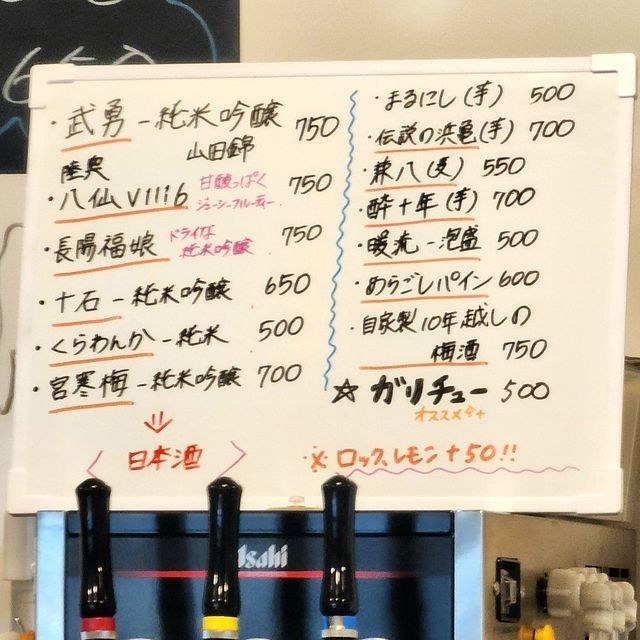 650
・武勇-純米吟醸 750
山田錦
陸奥
・八仙V1116 甘酸っぱく 750
ジューシーフルーティー
・長陽福娘 ドライな 750
純米吟醸
・十石-純米吟醸 650
・くらわんか-純米 500
・宮寒梅-純米吟醸 700
⇓
〈日本酒〉
・まるにし(芋) 500
・伝説の浜亀(芋) 700
・兼八(麦) 550
・酔十年(芋) 700
・暖流-泡盛 500
・めらごしパイン 600
・自家製10年越しの
梅酒 750
☆ガリチュー 500
オススメです
※ロック、レモン+50!!
Asahi